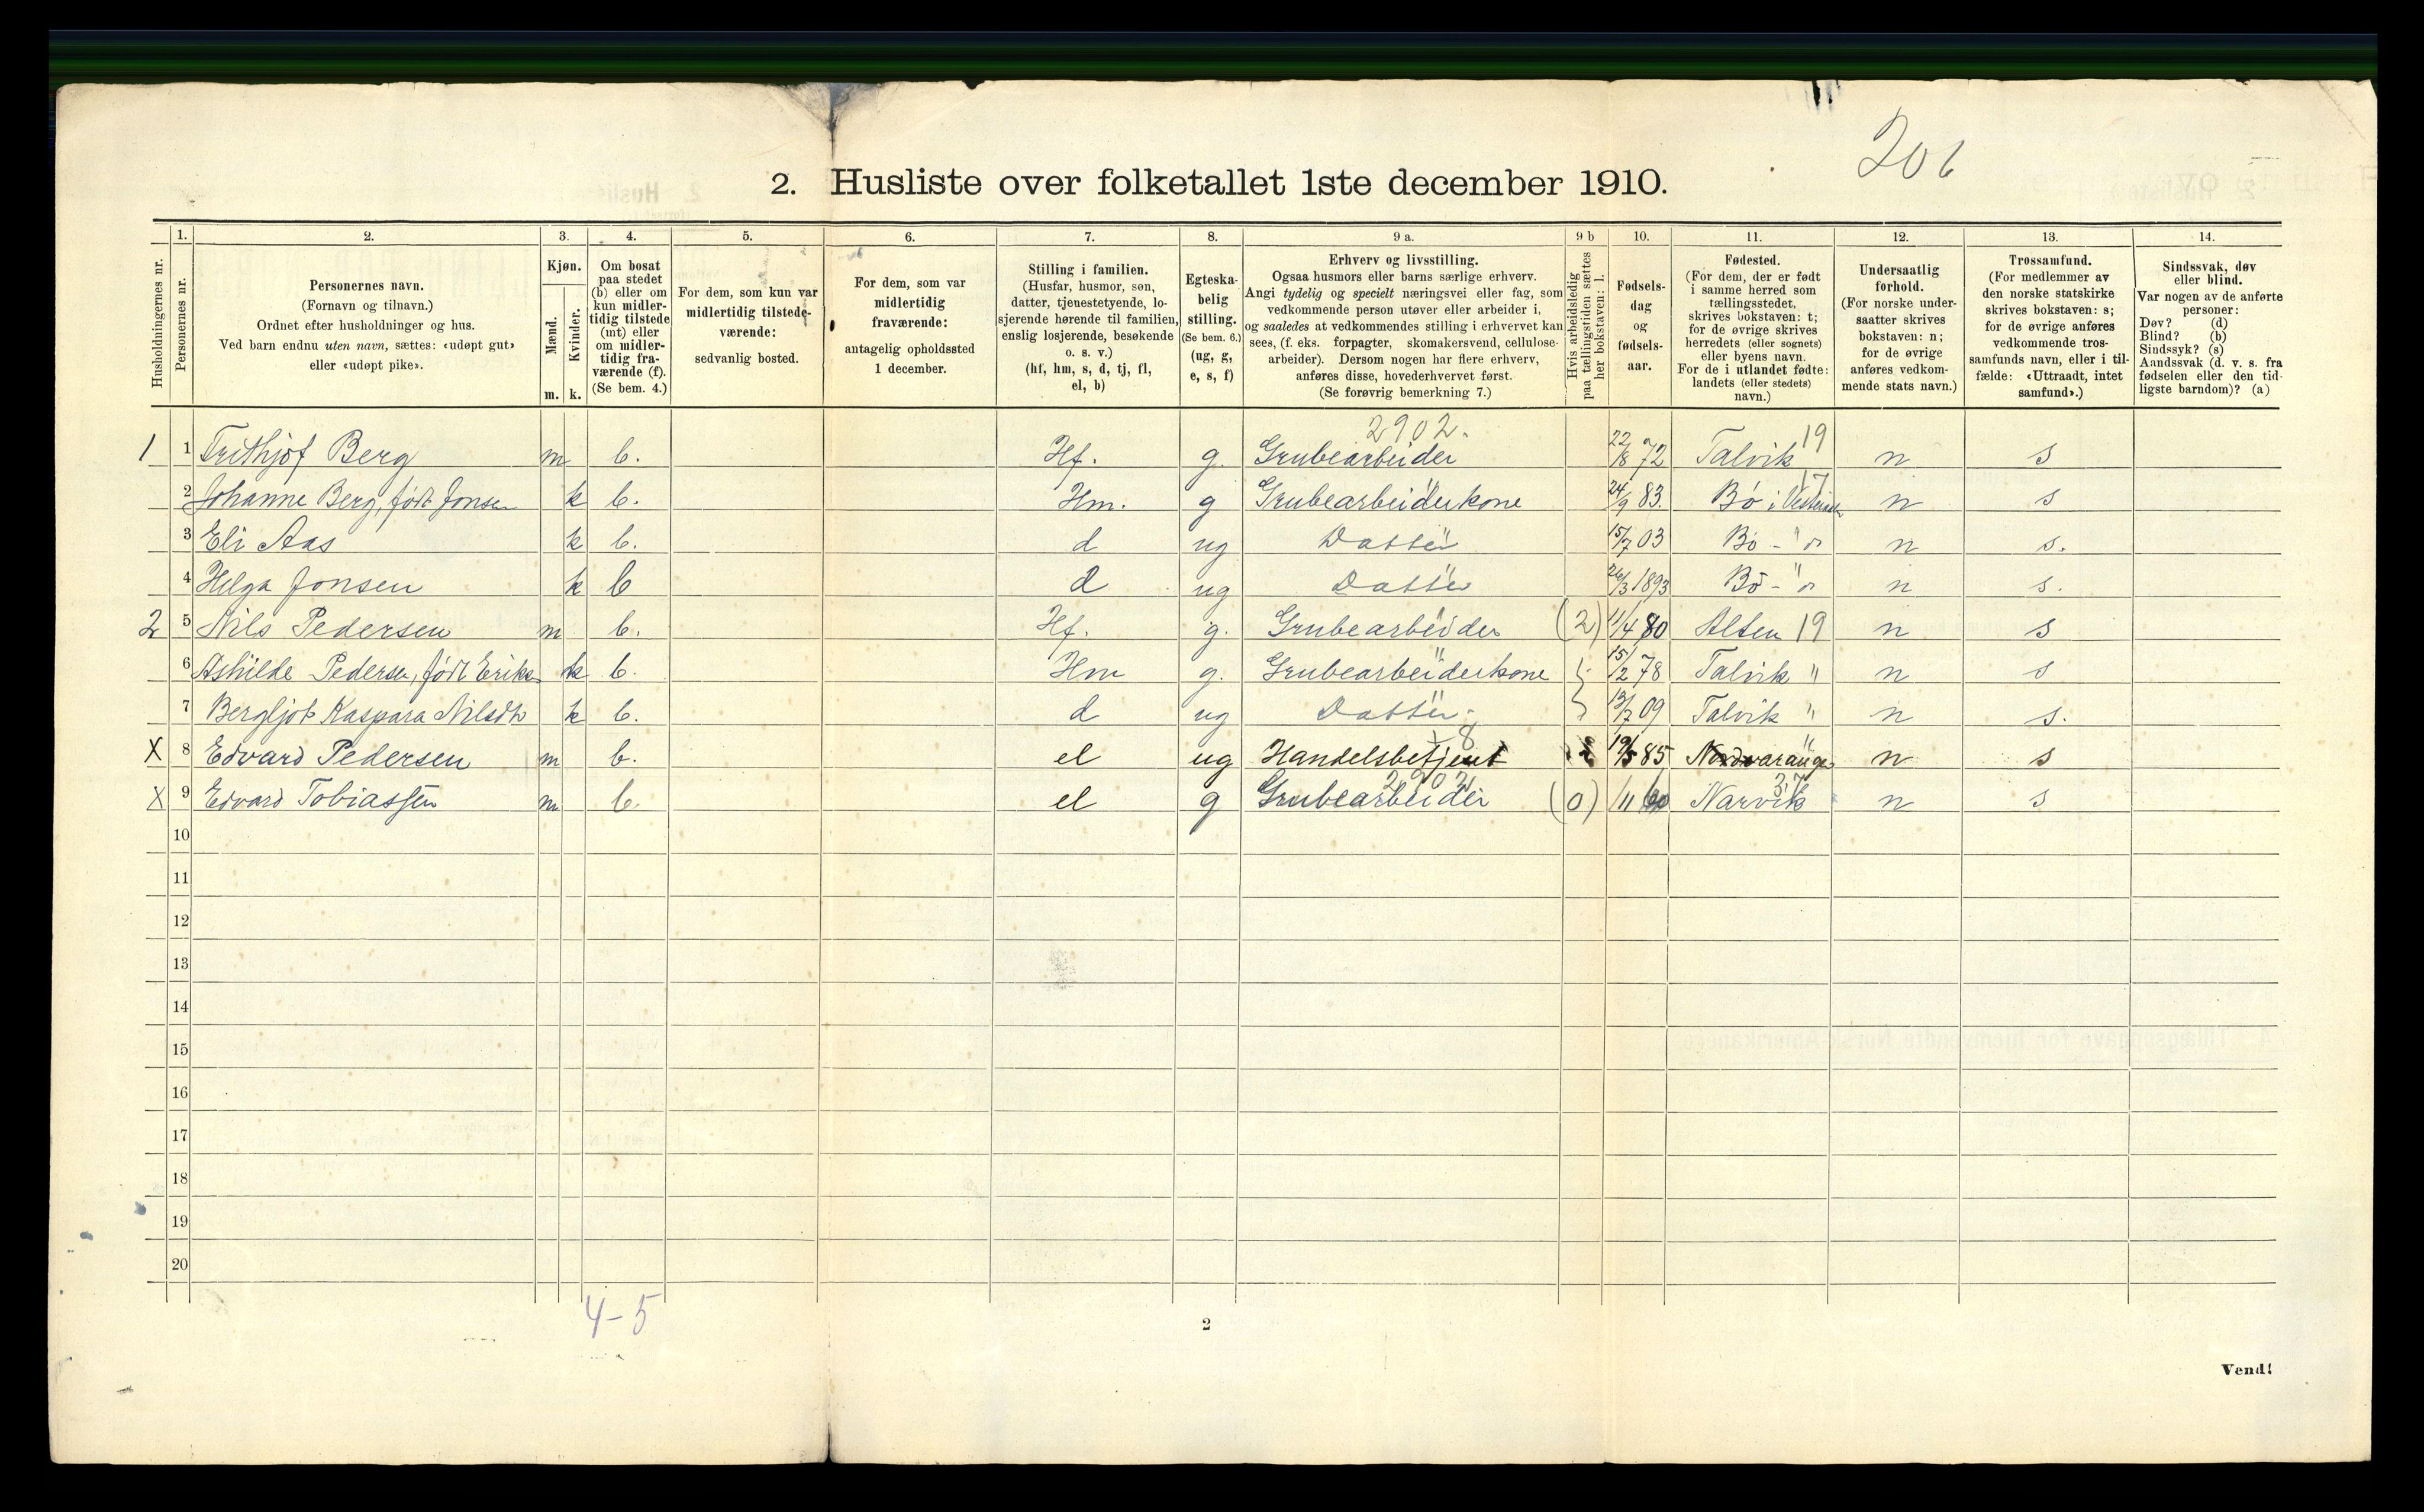 206
2. Husliste over folketallet 1ste december 1910.
1. 2. 3. 4. 5. 6. 7. 8. 9 a. 9 b 10. 11. 12. 13. 14.
Husholdningernes nr.
Personernes nr.
Personernes navn.
(Fornavn og tilnavn.)
Ordnet efter husholdninger og hus.
Ved barn endnu uten navn, sættes: «udøpt gut»
eller «udøpt pike».
Kjøn.
Mænd.
Kvinder.
m. k.
Om bosat
paa stedet
(b) eller om
kun midler-
tidig tilstede
(mt) eller
om midler-
tidig fra-
værende (f).
(Se bem. 4.)
For dem, som kun var
midlertidig tilstede-
værende:
sedvanlig bosted.
For dem, som var
midlertidig
fraværende:
antagelig opholdssted
1 december.
Stilling i familien.
(Husfar, husmor, søn,
datter, tjenestetyende, lo-
sjerende hørende til familien,
enslig losjerende, besøkende
o. s. v.)
(hf, hm, s, d, tj, fl,
el, b)
Egteska-
belig
stilling.
(Se bem. 6.)
(ug, g,
e, s, f)
Erhverv og livsstilling.
Ogsaa husmors eller barns særlige erhverv.
Angi tydelig og specielt næringsvei eller fag, som
vedkommende person utøver eller arbeider i,
og saaledes at vedkommendes stilling i erhvervet kan
sees, (f. eks. forpagter, skomakersvend, cellulose-
arbeider). Dersom nogen har flere erhverv,
anføres disse, hovederhvervet først.
(Se forøvrig bemerkning 7.)
Hvis arbeidsledig
paa tællingstiden sættes
her bokstaven: l.
Fødsels-
dag
og
fødsels-
aar.
Fødested.
(For dem, der er født
i samme herred som
tællingsstedet,
skrives bokstaven: t;
for de øvrige skrives
herredets (eller sognets)
eller byens navn.
For de i utlandet fødte:
landets (eller stedets)
navn.)
Undersaatlig
forhold.
(For norske under-
saatter skrives
bokstaven: n;
for de øvrige
anføres vedkom-
mende stats navn.)
Trossamfund.
(For medlemmer av
den norske statskirke
skrives bokstaven: s;
for de øvrige anføres
vedkommende tros-
samfunds navn, eller i til-
fælde: «Uttraadt, intet
samfund».)
Sindssvak, døv
eller blind.
Var nogen av de anførte
personer:
Døv? (d)
Blind? (b)
Sindssyk? (s)
Aandssvak (d. v. s. fra
fødselen eller den tid-
ligste barndom)? (a)
2902. 19
1 1 Frithjof Berg m b. Hf. g. Grubearbeider 22/8 72 Talvik n s
17
2 Johanne Berg, født Jonsen k b. Hm. g Grubearbeiderkone 24/9 83. Bø i n s
3 Eli Aas k b. d ug Datter 15/7 03 Bø - " n s.
4 Helga Jonsen k b d ug Datter 26/3 1893 Bø - " n s.
2 5 Nils Pedersen m b. Hf. g. Grubearbeider (2) 11/4 80 Alten 19 n s
6 Ashilde Pedersen, født Eriksen k b. Hm g. Grubearbeiderkone 15/12 78 Talvik " n s
7 Bergljot Kaspara Nilsdtr k b. d ug Datter 13/7 09 Talvik " n s.
8
X 8 Edvard Pedersen m b. el ug Handelsbetjent 19/5 85 n s
2902 37
X 9 Edvard Tobiassen m b el g Grubearbeider (0) /11 60 Narvik n s
10
11
12
13
14
15
16
17
18
19
20
4-5
2
Vend!